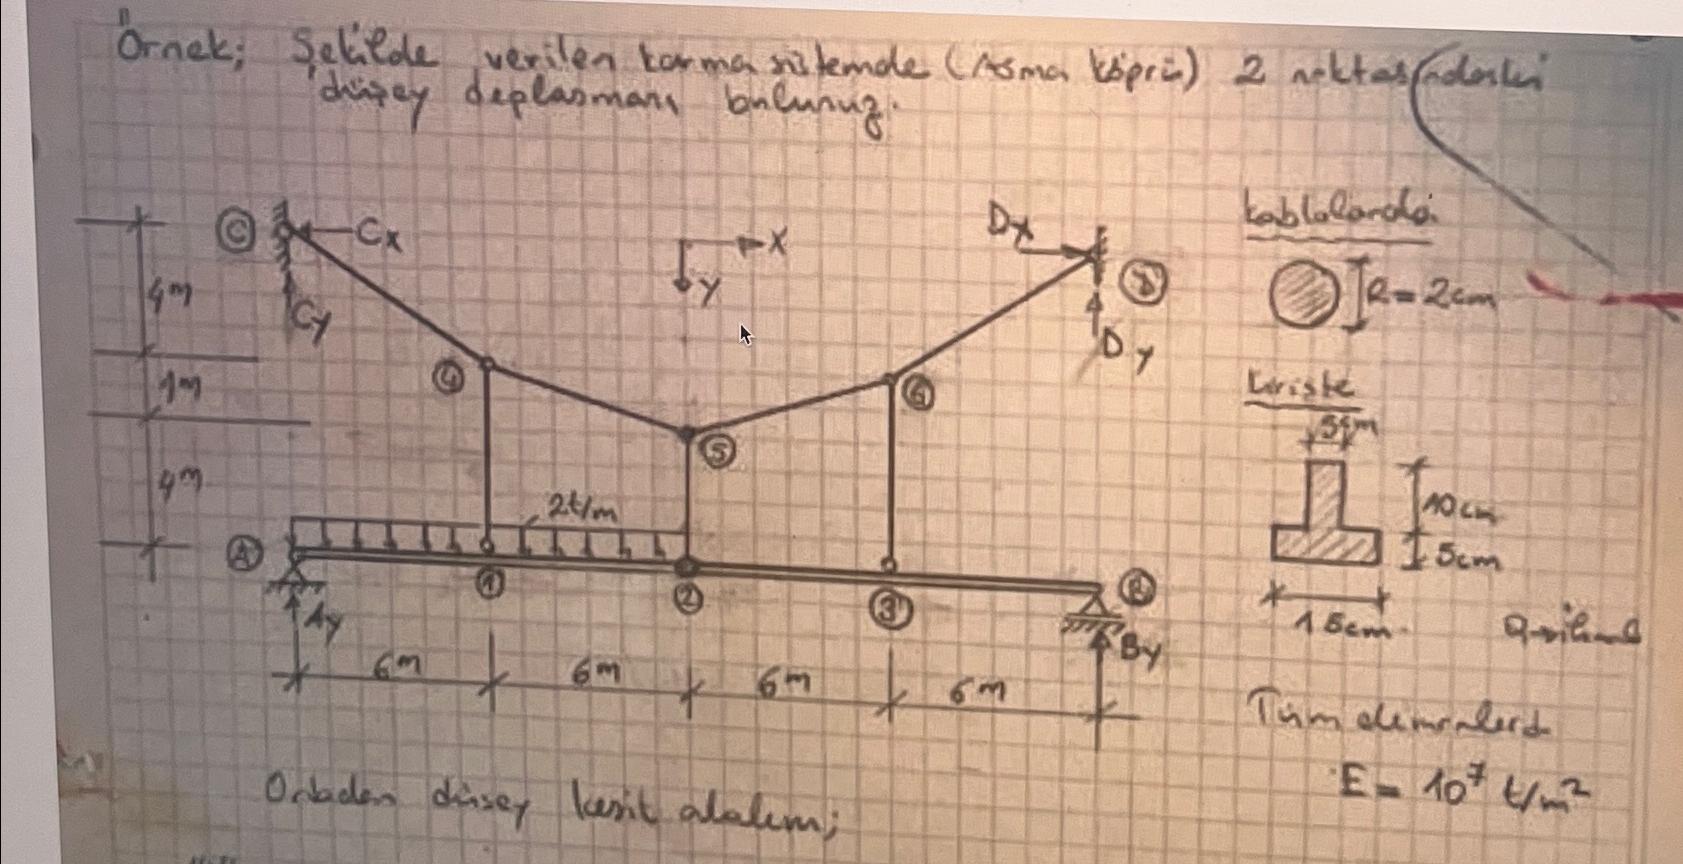 Örnek; Şekilde verilen karma sistemde (Asma köprü) 2 noktasındaki
düşey deplasmanı bulunuz.
C Cx
Cy
X
Y
Dx
D
Dy
4m
1m
4m
4
5
6
2t/m
A
Ay
1
2
3
B
By
6m 6m 6m 6m
kablolarda
R=2cm
kirişte
5cm
10cm
5cm
15cm
Tüm elemanlarda
E = 10⁷ t/m²
Ortadan düşey kesit alalım;